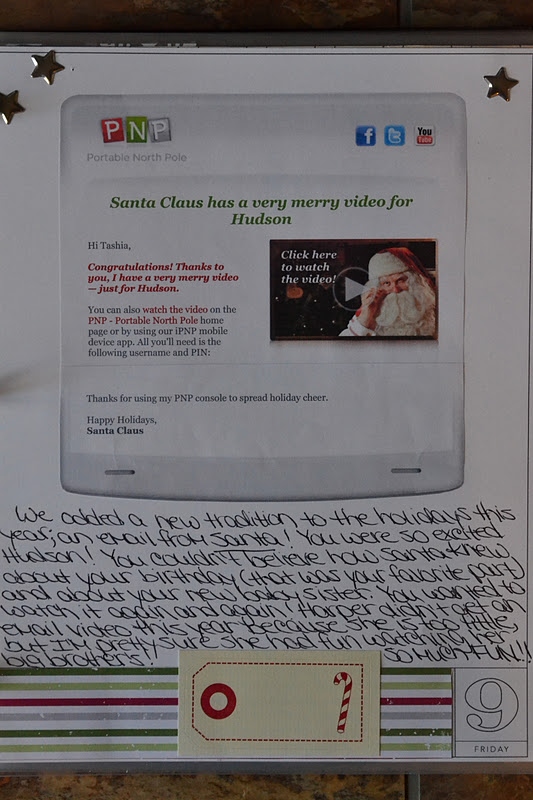 PNP
Portable North Pole
f
You
Tube
Santa Claus has a very merry video for
Hudson
Hi Tashia,
Congratulations! Thanks to
you, I have a very merry video
— just for Hudson.
You can also watch the video on the
PNP - Portable North Pole home
page or by using our iPNP mobile
device app. All you'll need is the
following username and PIN:
Click here
to watch
the video!
Thanks for using my PNP console to spread holiday cheer.
Happy Holidays,
Santa Claus
We added a new tradition to the holidays this
year; an email from Santa! You were so excited
Hudson! You couldn't believe how Santa knew
about your birthday (that was your favorite part)
and about your new baby sister. You wanted to
watch it again and again! Harper didn't get an
email video this year because she is too little,
but I'm pretty sure she had fun watching her
big brothers! SO MUCH FUN!!
9
FRIDAY